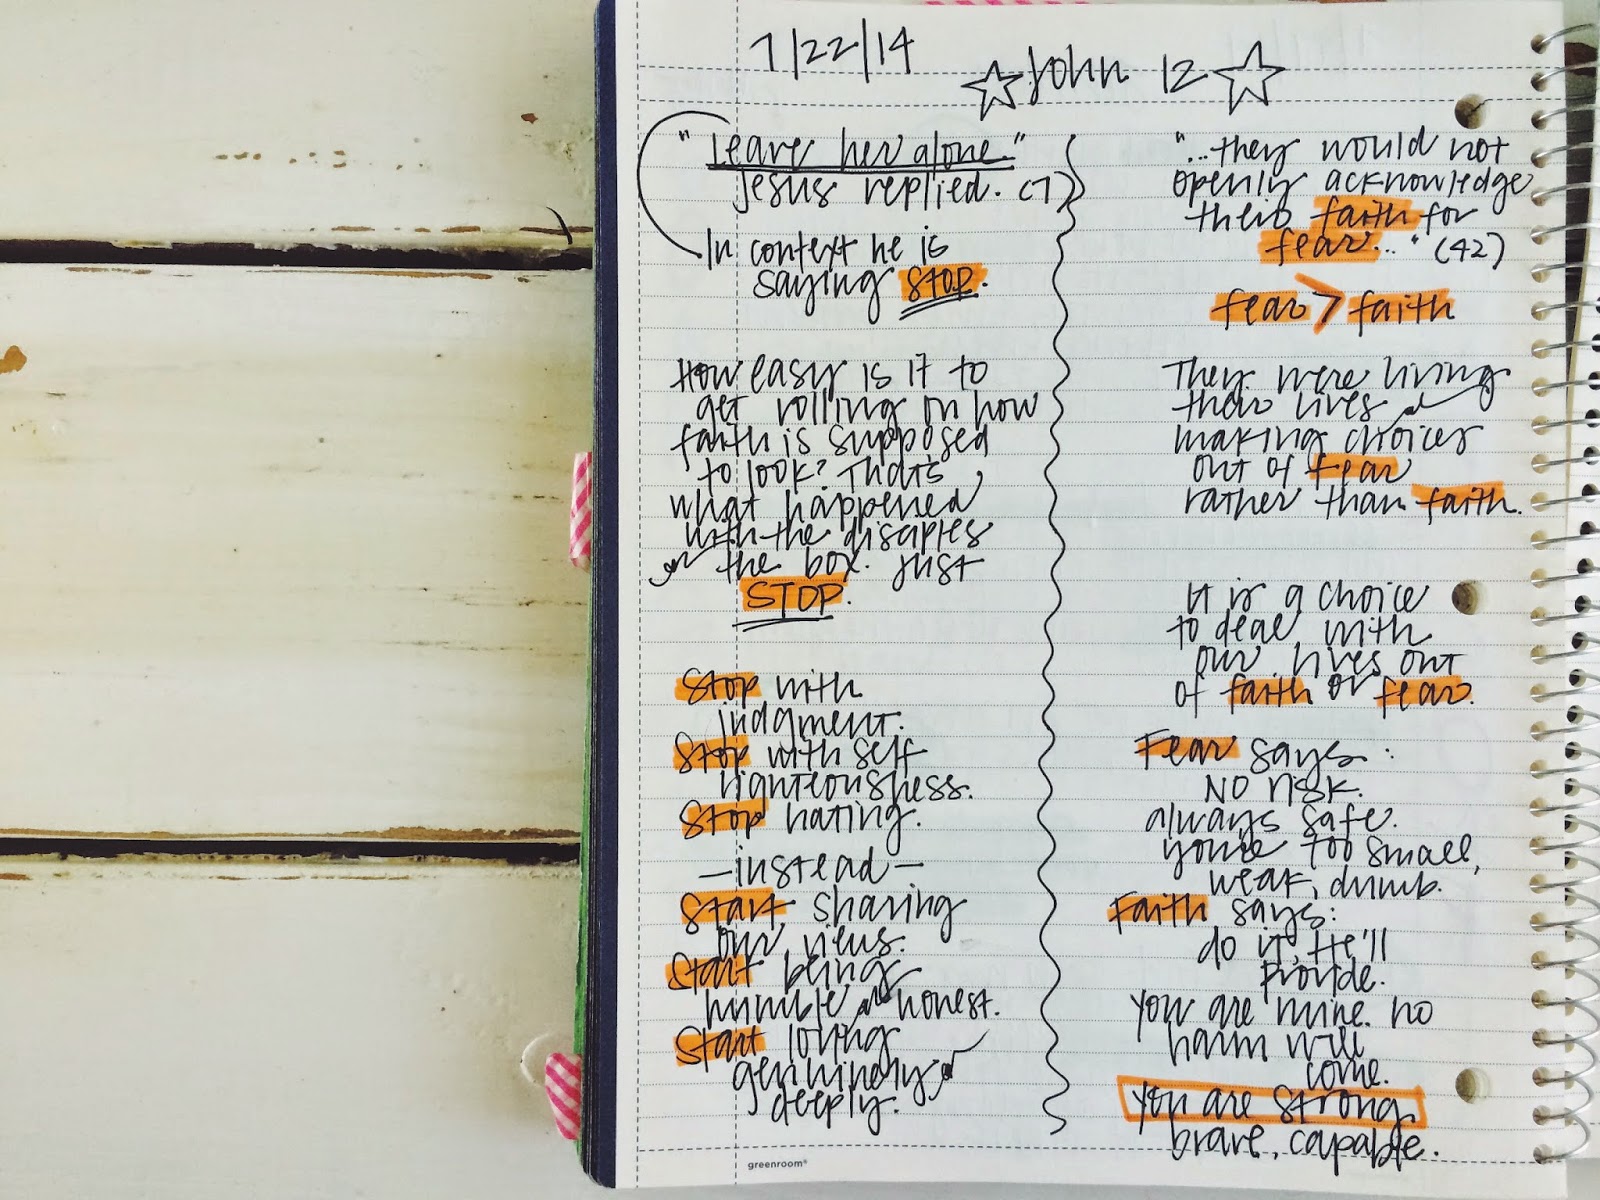 7/22/14
☆ John 12 ☆
"Leave her alone."
Jesus replied. (7)
In context he is
saying STOP.
How easy is it to
get rolling on how
faith is supposed
to look? That's
what happened
with the disciples
the box. Just
STOP.
Stop with
judgment.
Stop with self
righteousness.
Stop hating.
—instead—
Start sharing
our views.
Start being
humble & honest.
Start loving
genuinely &
deeply.
"...they would not
openly acknowledge
their faith for
fear..." (42)
fear > faith
They were living
their lives &
making choices
out of fear
rather than faith.
It is a choice
to deal with
our lives out
of faith or fear.
Fear says:
NO risk.
always safe.
you're too small,
weak, dumb.
Faith says:
do it, He'll
provide.
You are mine. no
harm will
come.
You are strong,
brave, capable.
greenroom®